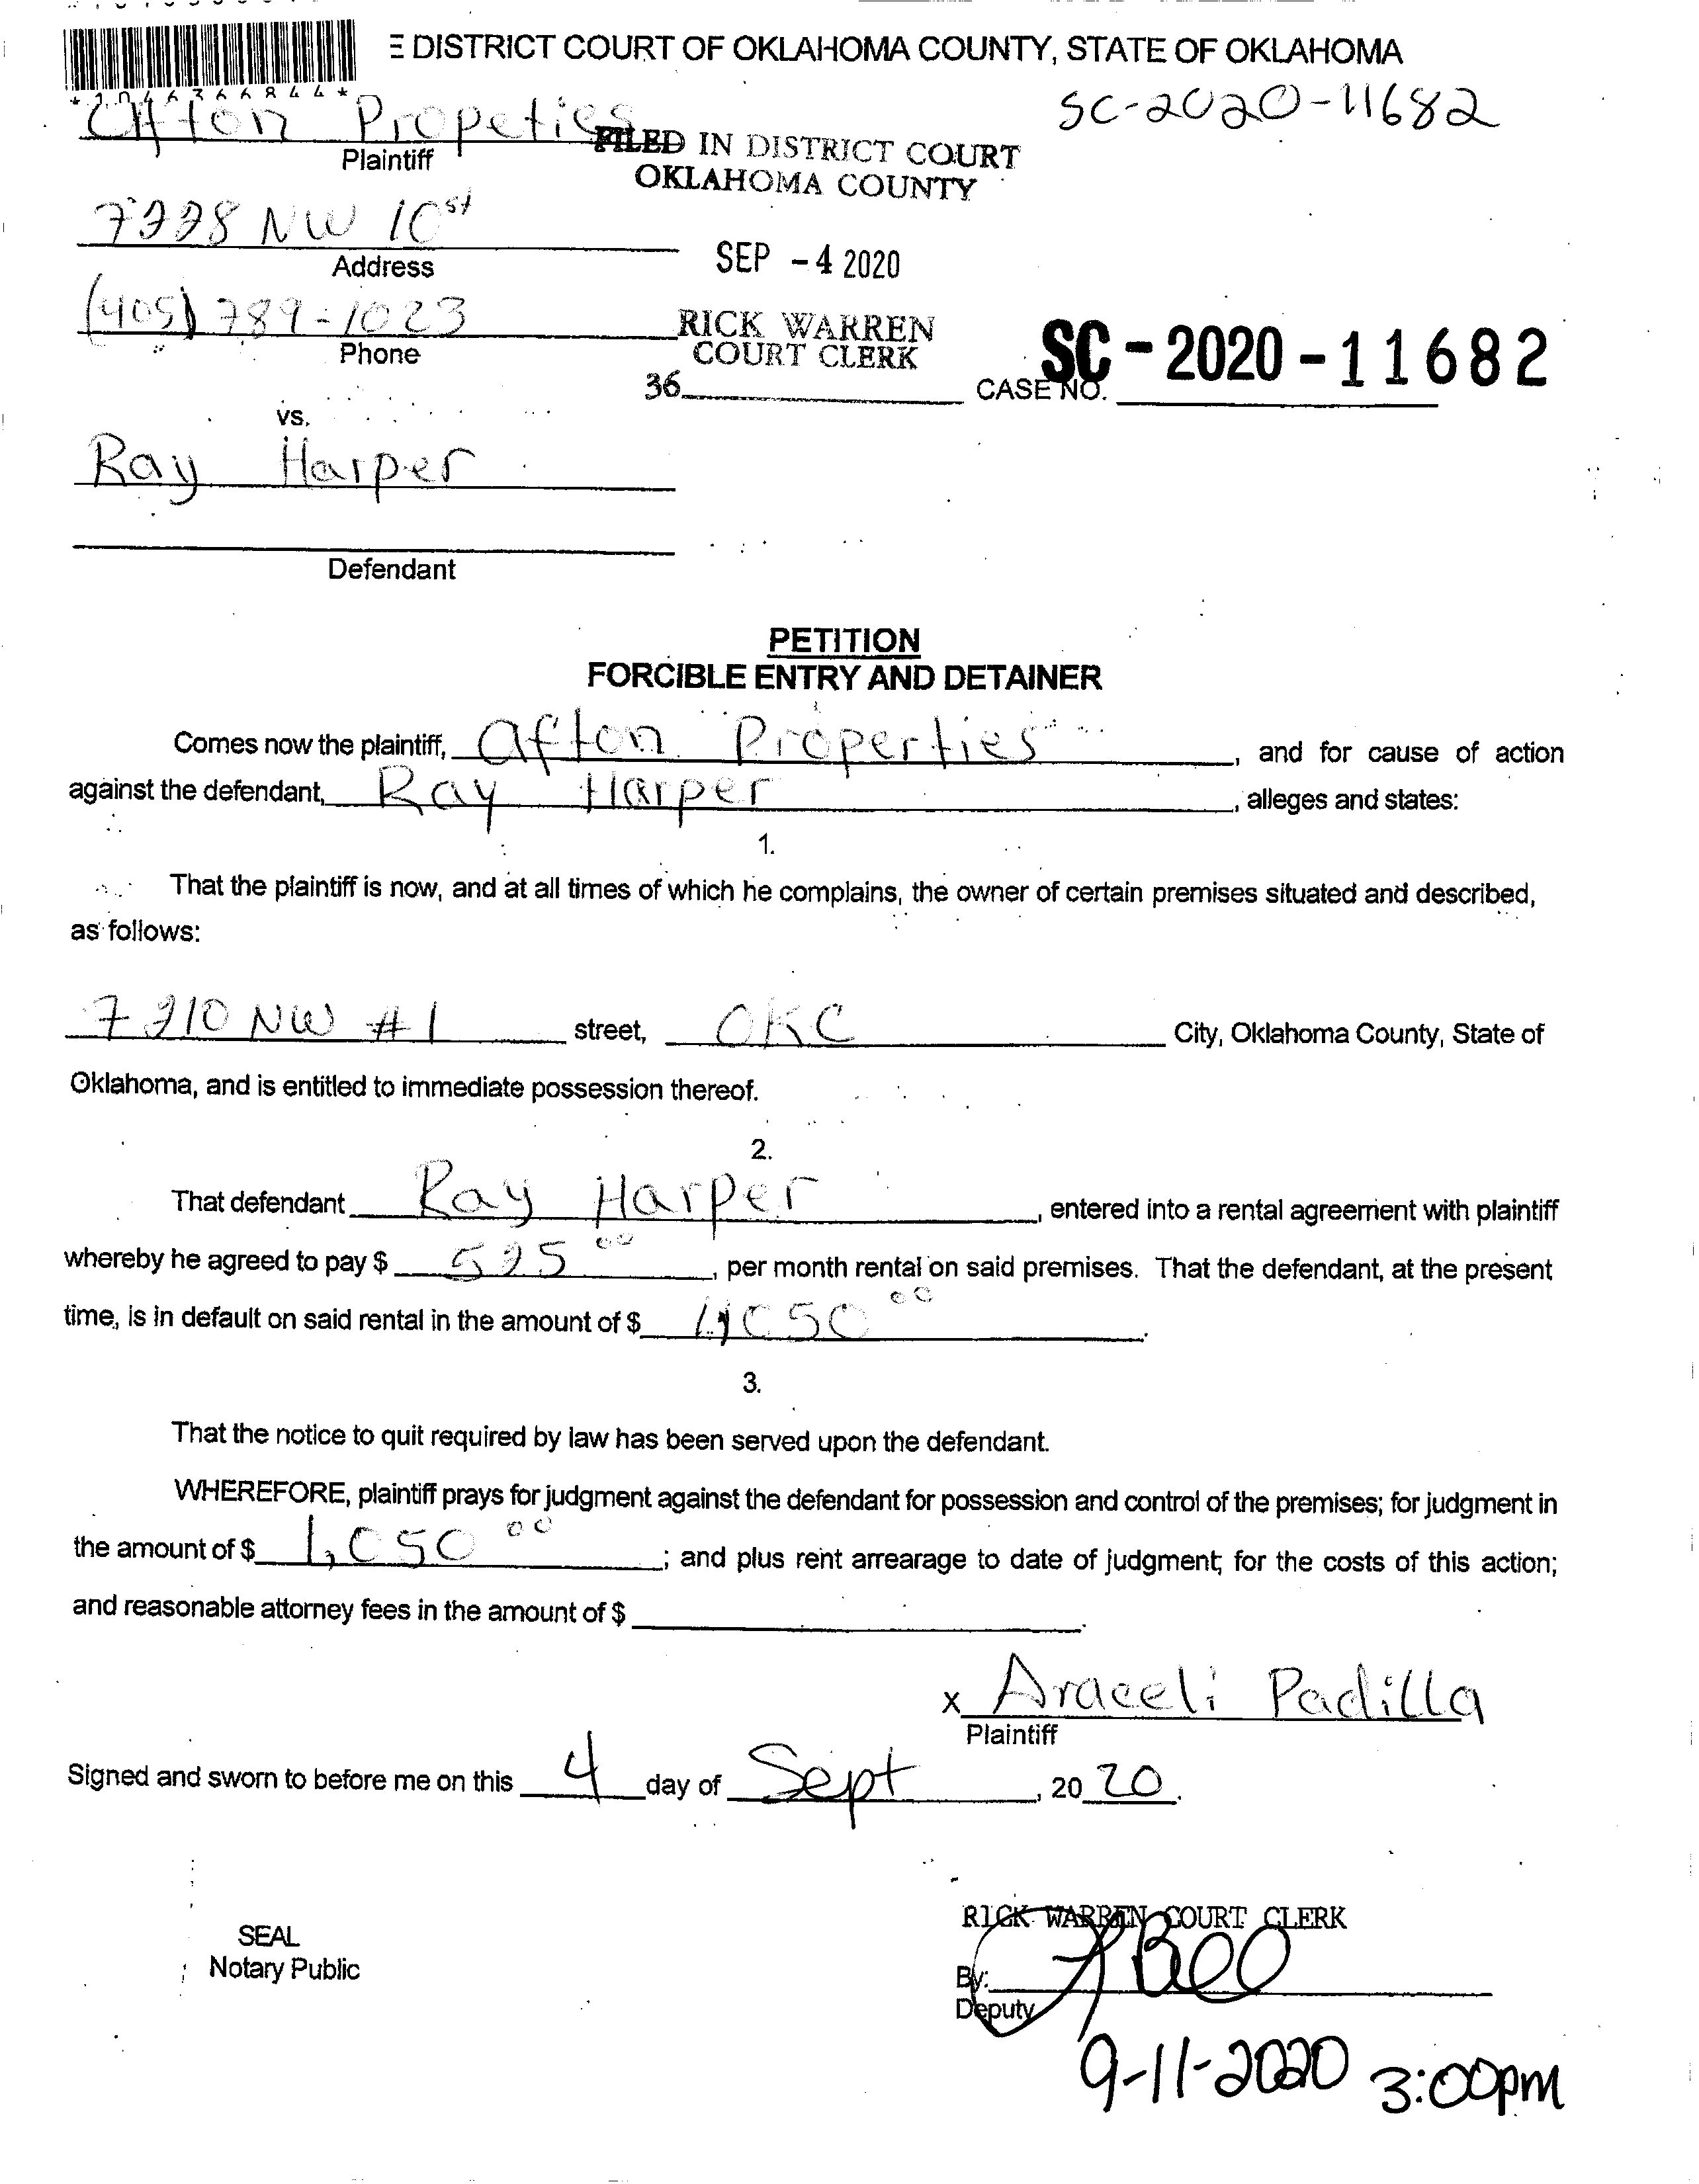 E DISTRICT COURT OF OKLAHOMA COUNTY, STATE OF OKLAHOMA
SC-2020-11682
Afton Propeties
Plaintiff
FILED IN DISTRICT COURT
OKLAHOMA COUNTY
7228 NW 10st
Address
SEP - 4 2020
(405) 789-1023
Phone
RICK WARREN
COURT CLERK
36
CASE NO. SC-2020-11682
vs.
Ray Harper
Defendant
PETITION
FORCIBLE ENTRY AND DETAINER
Comes now the plaintiff, Afton Properties, and for cause of action
against the defendant, Ray Harper, alleges and states:
1.
That the plaintiff is now, and at all times of which he complains, the owner of certain premises situated and described,
as follows:
7210 NW #1 street, OKC City, Oklahoma County, State of
Oklahoma, and is entitled to immediate possession thereof.
2.
That defendant Ray Harper, entered into a rental agreement with plaintiff
whereby he agreed to pay $ 525 00, per month rental on said premises. That the defendant, at the present
time, is in default on said rental in the amount of $ 1,050 00.
3.
That the notice to quit required by law has been served upon the defendant.
WHEREFORE, plaintiff prays for judgment against the defendant for possession and control of the premises; for judgment in
the amount of $ 1,050 00; and plus rent arrearage to date of judgment; for the costs of this action;
and reasonable attorney fees in the amount of $.
x Araceli Padilla
Plaintiff
Signed and sworn to before me on this 4 day of Sept, 20 20.
SEAL
Notary Public
RICK WARREN COURT CLERK
By:
Deputy
9-11-2020 3:00pm